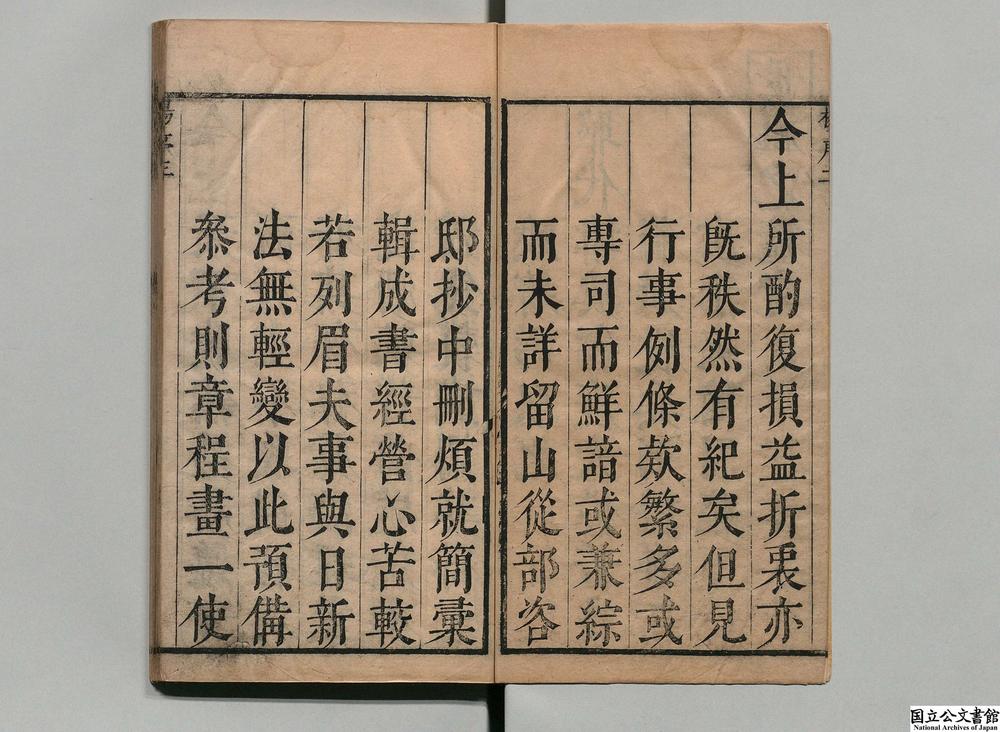 今上所酌復損益折衷亦
既秩然有紀矣但見
行事例條欵繁多或
專司而鮮諳或兼綜
而未詳留山從部咨
邸抄中刪煩就簡彙
輯成書經營心苦較
若列眉夫事與日新
法無輕變以此預備
叅考則章程畫一使
国立公文書館
National Archives of Japan